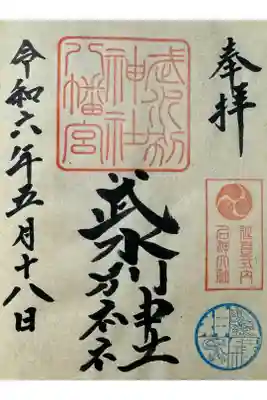 奉拝
武水別
神社
八幡宮
延喜式内
名神大社
武水別神社
令和六年五月十八日